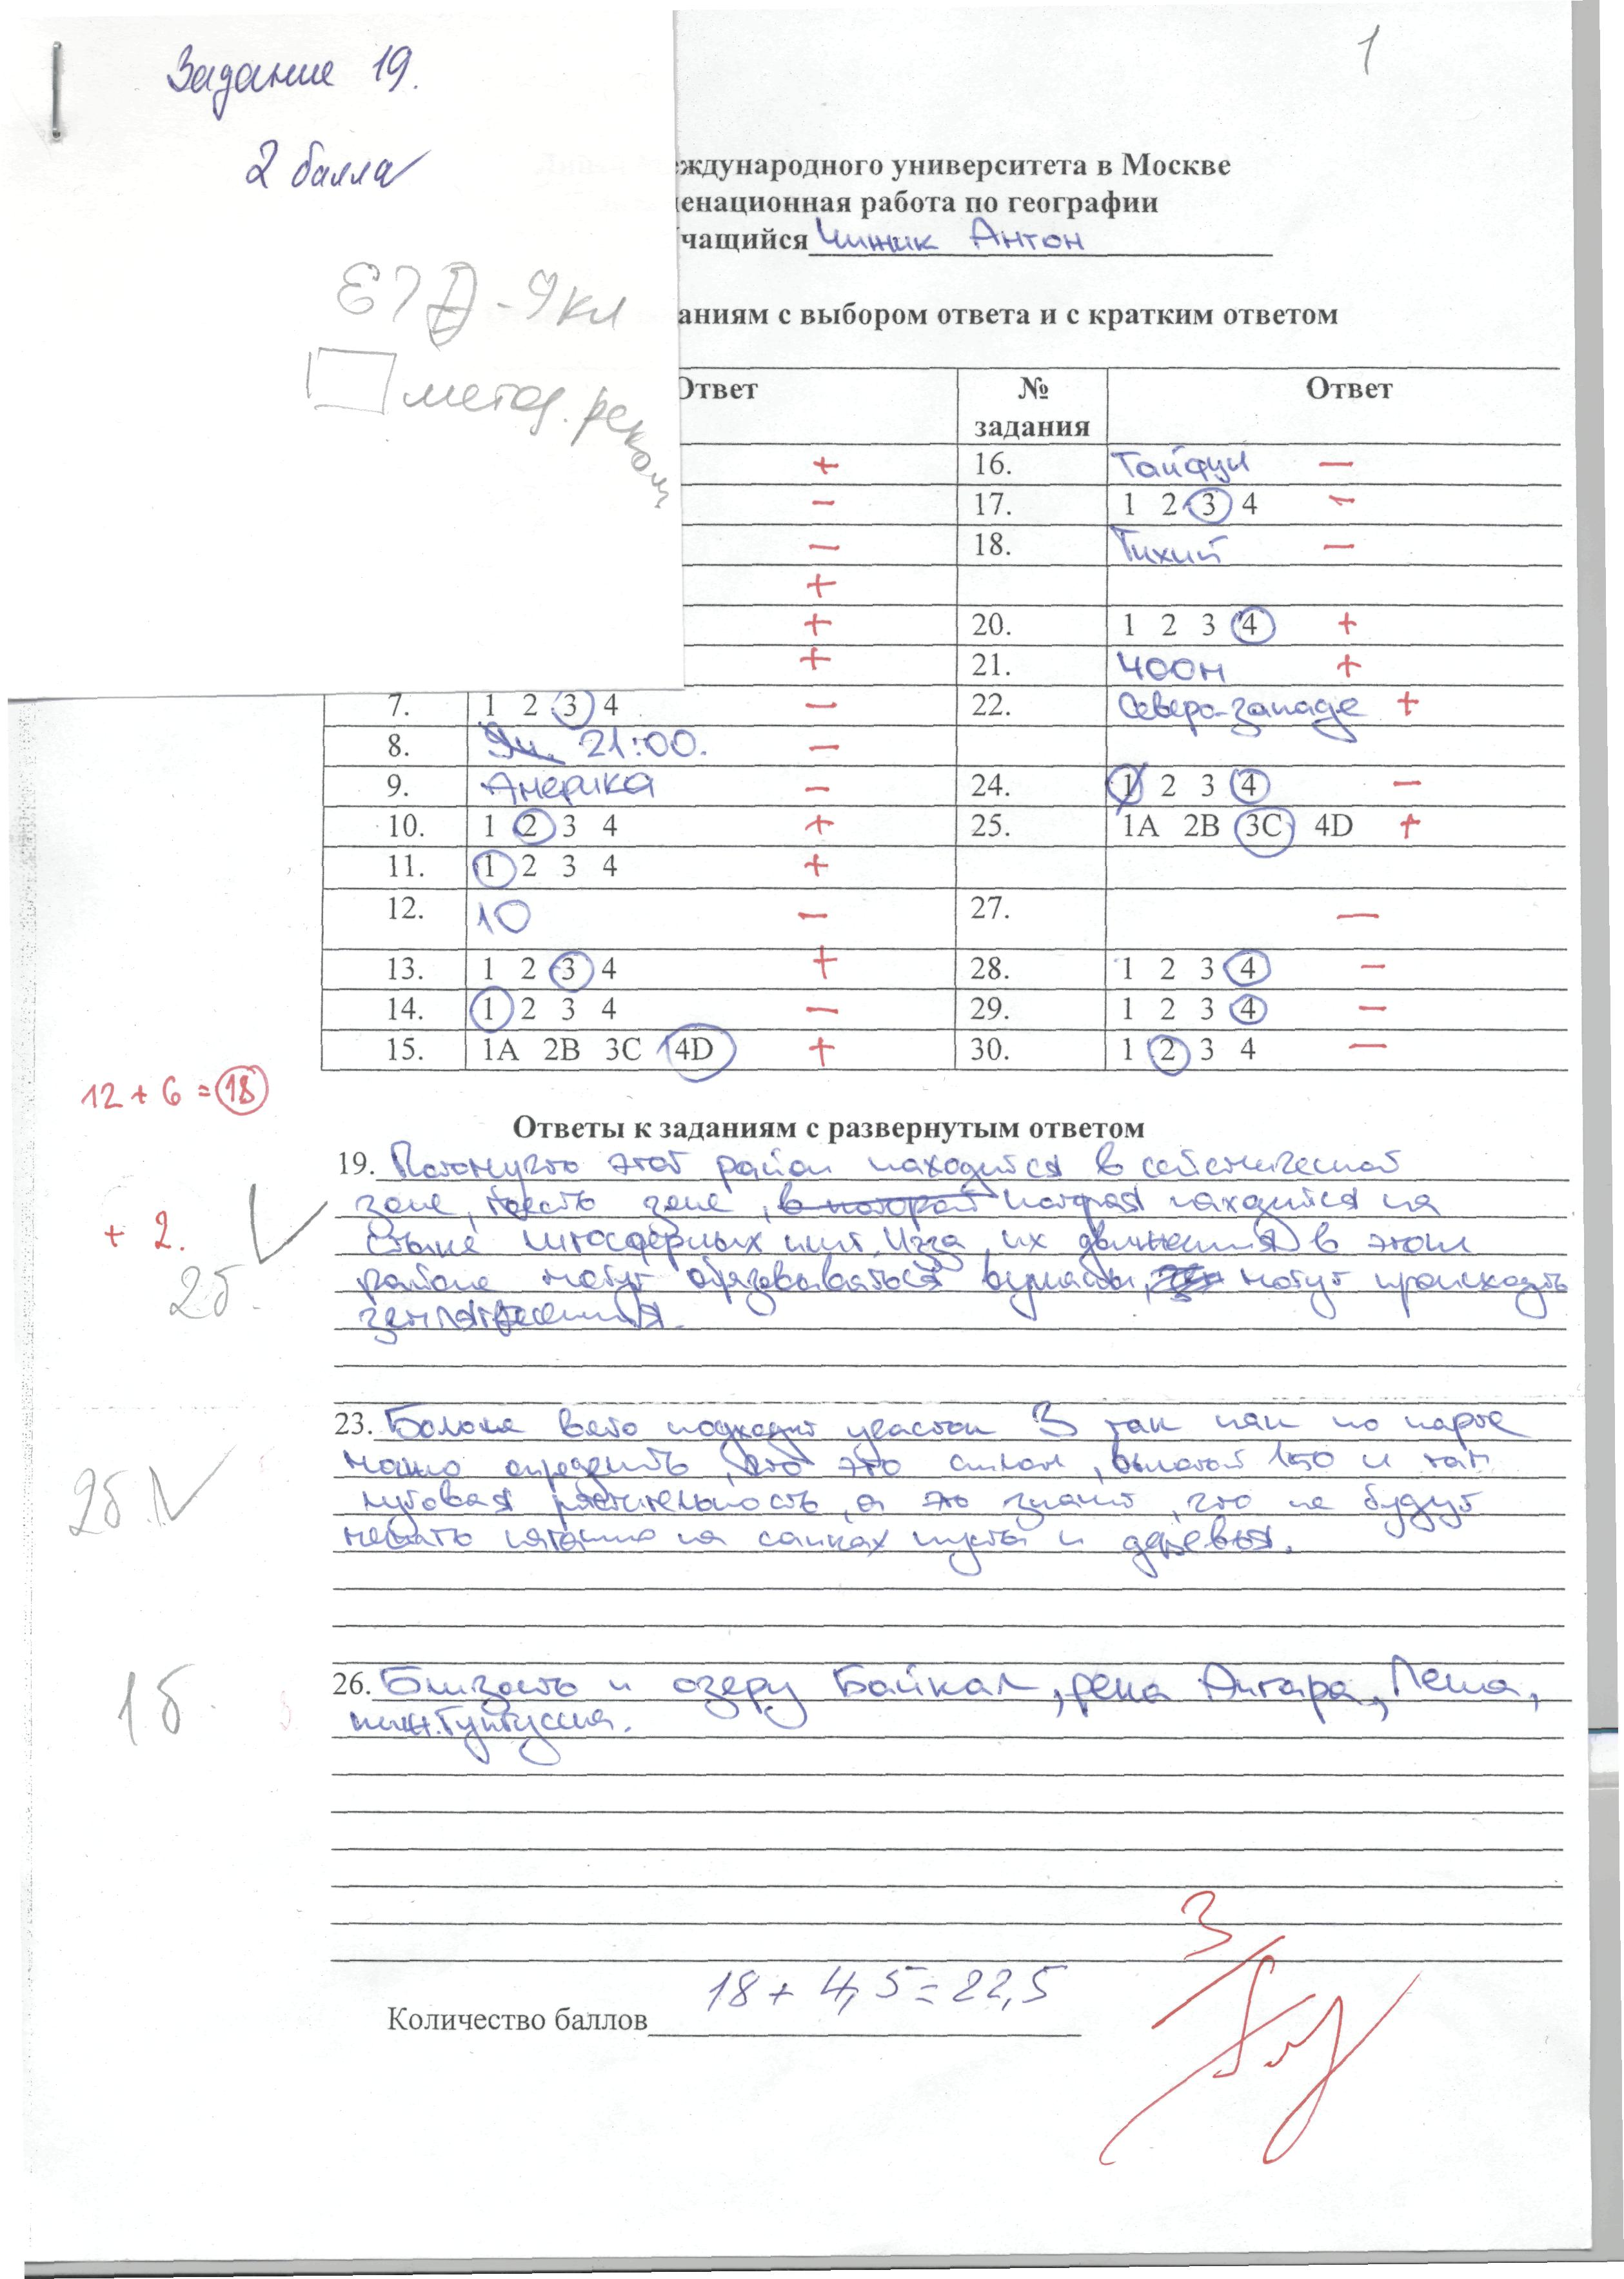 1
Задание 19.
2 балла
еждународного университета в Москве
енационная работа по географии
чащийся Чижик Антон
-9 кл
метод. реком
аниям с выбором ответа и с кратким ответом
Ответ № задания Ответ
+ 16. Тайфун −
− 17. 1 2 3 4 −
− 18. Тихий −
+
+ 20. 1 2 3 4 +
+ 21. 400м +
7. 1 2 3 4 − 22. Северо-западе +
8. 21:00. −
9. Америка − 24. 1 2 3 4 −
10. 1 2 3 4 + 25. 1A 2B 3C 4D +
11. 1 2 3 4 +
12. 10 − 27. −
13. 1 2 3 4 + 28. 1 2 3 4 −
14. 1 2 3 4 − 29. 1 2 3 4 −
15. 1A 2B 3C 4D + 30. 1 2 3 4 −
12 + 6 = 18
Ответы к заданиям с развернутым ответом
19. Потомучто этот район находится в сейсмической
зоне, тоесть зоне, в которой которая находится на
+ 2.
стыке литосферных плит. Изза их движения в этом
районе могут образовываться вулканы, могут происходить
2б.
землетрясения.
23. Больше всего подходит участок 3 так как по карте
можно определить, что это склон, высотой 150 и там
2б.
луговая растительность, а это значит, что не будут
мешать катанию на санках кусты и деревья.
26. Близость к озеру Байкал, река Ангара, Лена,
1б.
ниж. Тунгуска.
3
18 + 4,5 = 22,5
Количество баллов